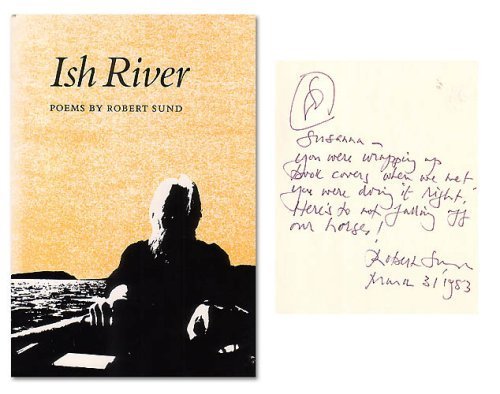 Ish River
POEMS BY ROBERT SUND
Susanna –
you were wrapping up
book covers when we met
you were doing it right,
Here's to not falling off
our horses!
Robert Sund
March 31 1983